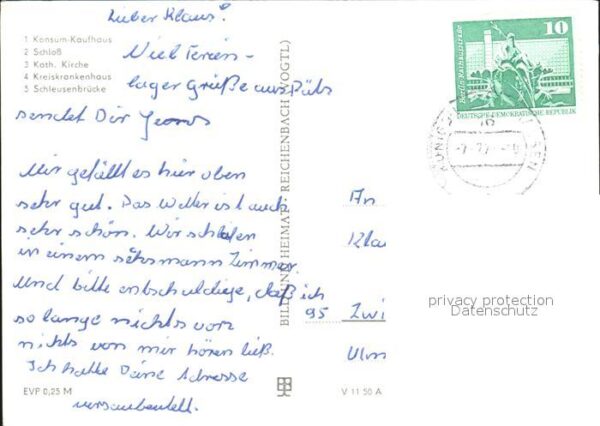 1 Konsum-Kaufhaus
2 Schloß
3 Kath. Kirche
4 Kreiskrankenhaus
5 Schleusenbrücke
Lieber Klaus!
Viel Ferien-
lager Grüße aus
sendet Dir
Mir gefällt es hier oben
sehr gut. Das Wetter ist auch
sehr schön. Wir schlafen
in einem sechsmann Zimmer.
Und bitte entschuldige, daß ich
so lange nichts von
nichts von mir hören ließ.
Ich hatte Deine Adresse
EVP 0,25 M
BILD UND HEIMAT REICHENBACH (VOGTL)
V 11 50 A
10
Berlin-Rathausstraße
DEUTSCHE DEMOKRATISCHE REPUBLIK
An
Kla
95 Zwi
Ulm
privacy protection
Datenschutz